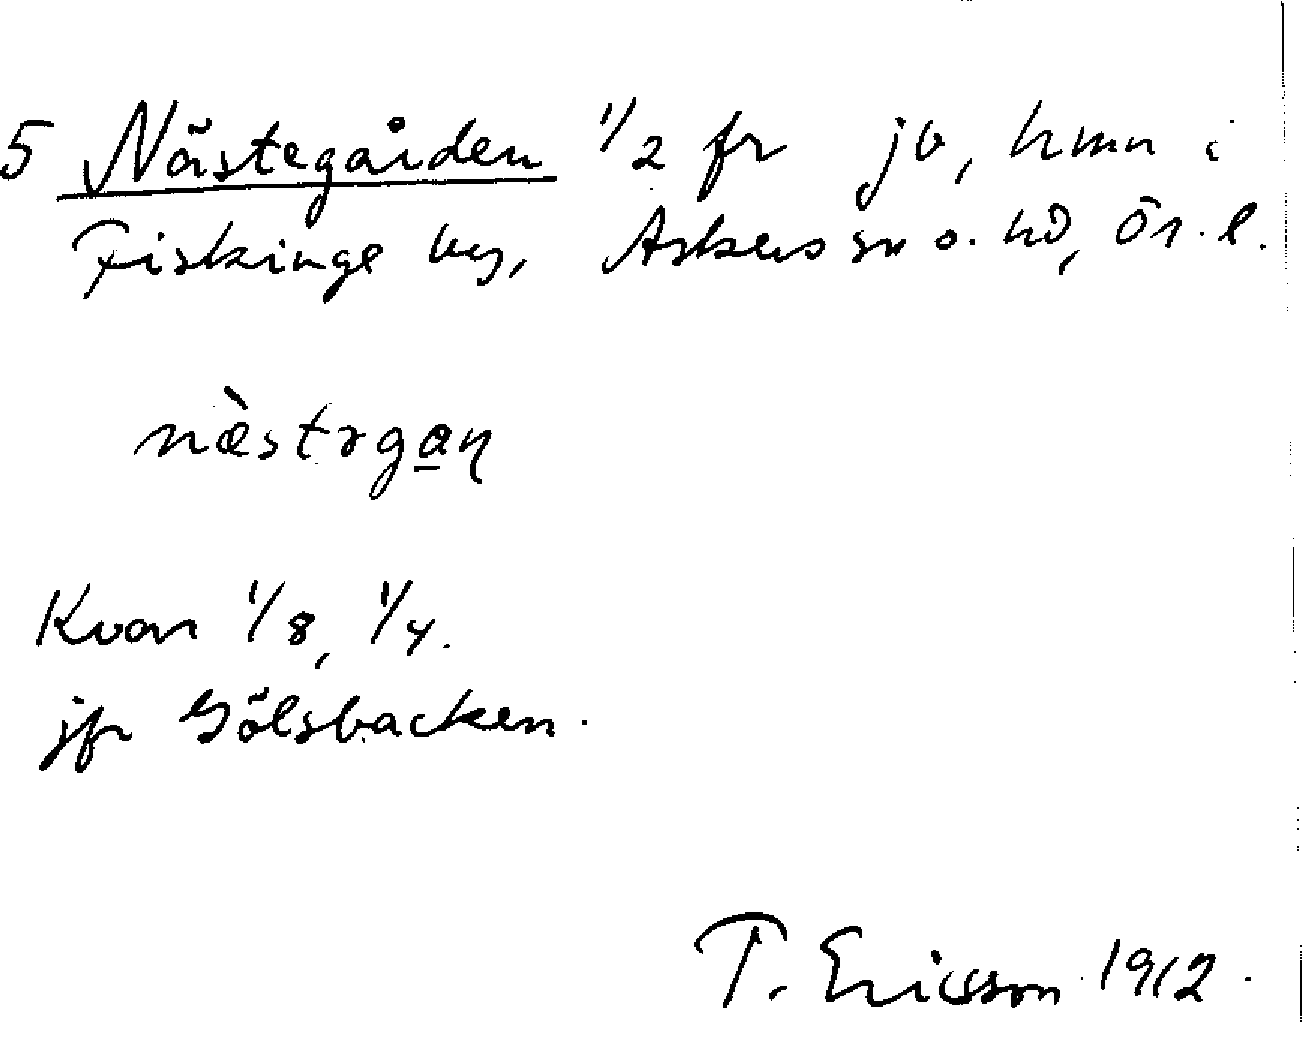 5 Nästegården 1/2 fr jo, hmn i
Fiskinge by, Askers sn o. hd, Ör. l.
næ̀stəga̲ɳ
Kvar 1/8, 1/4.
jfr Gölsbacken.
T. Ericsson 1912.